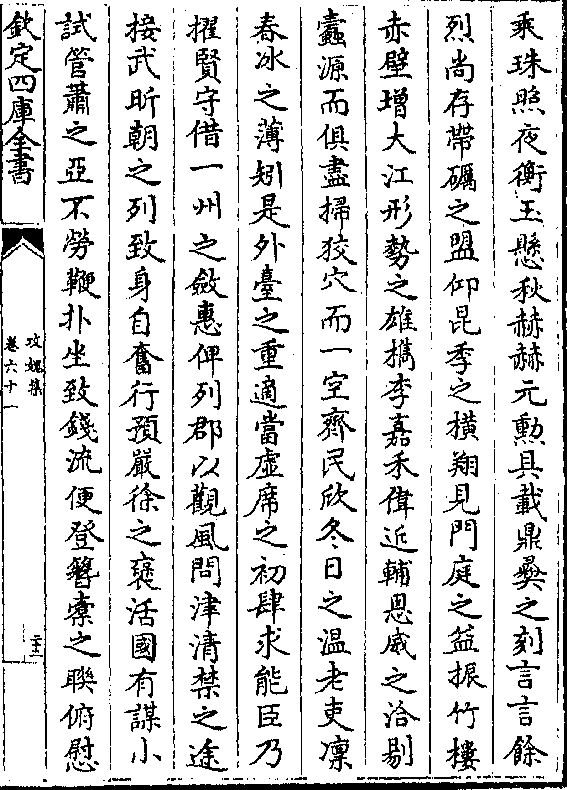 乘珠照夜衡玉懸秋赫赫元勳具載鼎彝之刻言言餘
烈尚存帶礪之盟仰昆季之横翔見門庭之益振竹樓
赤壁增大江形勢之雄擕李嘉禾偉近輔恩威之洽剔
蠹源而俱盡掃狡穴而一空齊民欣冬日之温老吏凛
春冰之薄矧是外臺之重適當虛席之初肆求能臣乃
擢賢守借一州之斂惠俾列郡以觀風問津清禁之途
接武昕朝之列致身自奮行預嚴徐之褒活國有謀小
試管蕭之亞不勞鞭扑坐致錢流便登簪橐之聯俯慰
欽定四庫全書
攻媿集
卷六十一
二十二